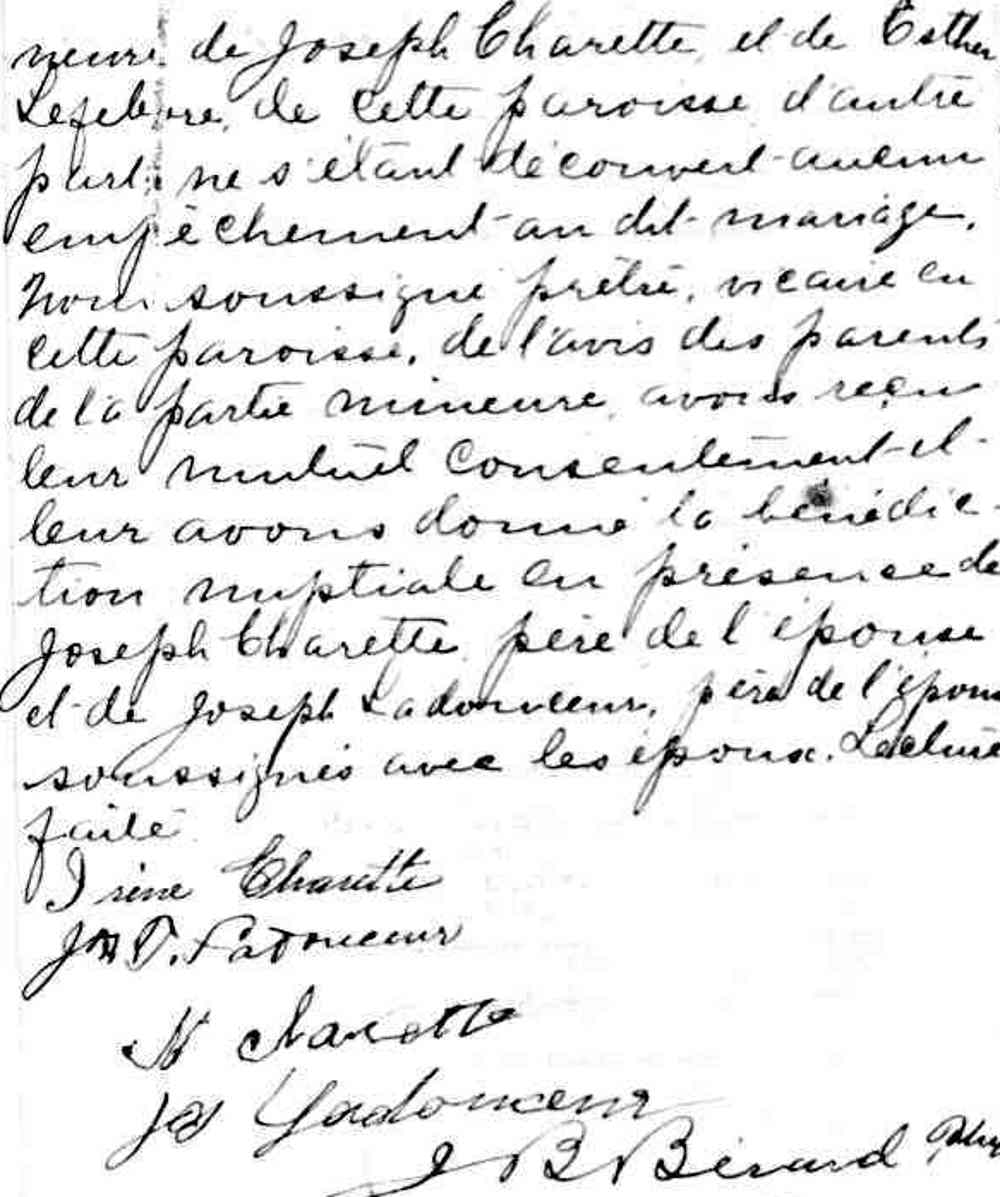 neure de Joseph Charette, et de Esther
Lefebvre, de cette paroisse d'autre
part; ne s'étant découvert aucun
empêchement au dit mariage,
Nous soussigné prêtre, vicaire en
cette paroisse, de l'avis des parents
de la partie mineure, avons reçu
leur mutuel consentement et
leur avons donné la bénédic-
tion nuptiale en présence de
Joseph Charette, père de l'épouse
et de Joseph Ladouceur, père de l'époux
soussignés avec les époux. Lecture
faite.
Irène Charette
Jos T. Ladouceur
Charette
Jos Ladouceur
J B Bérard